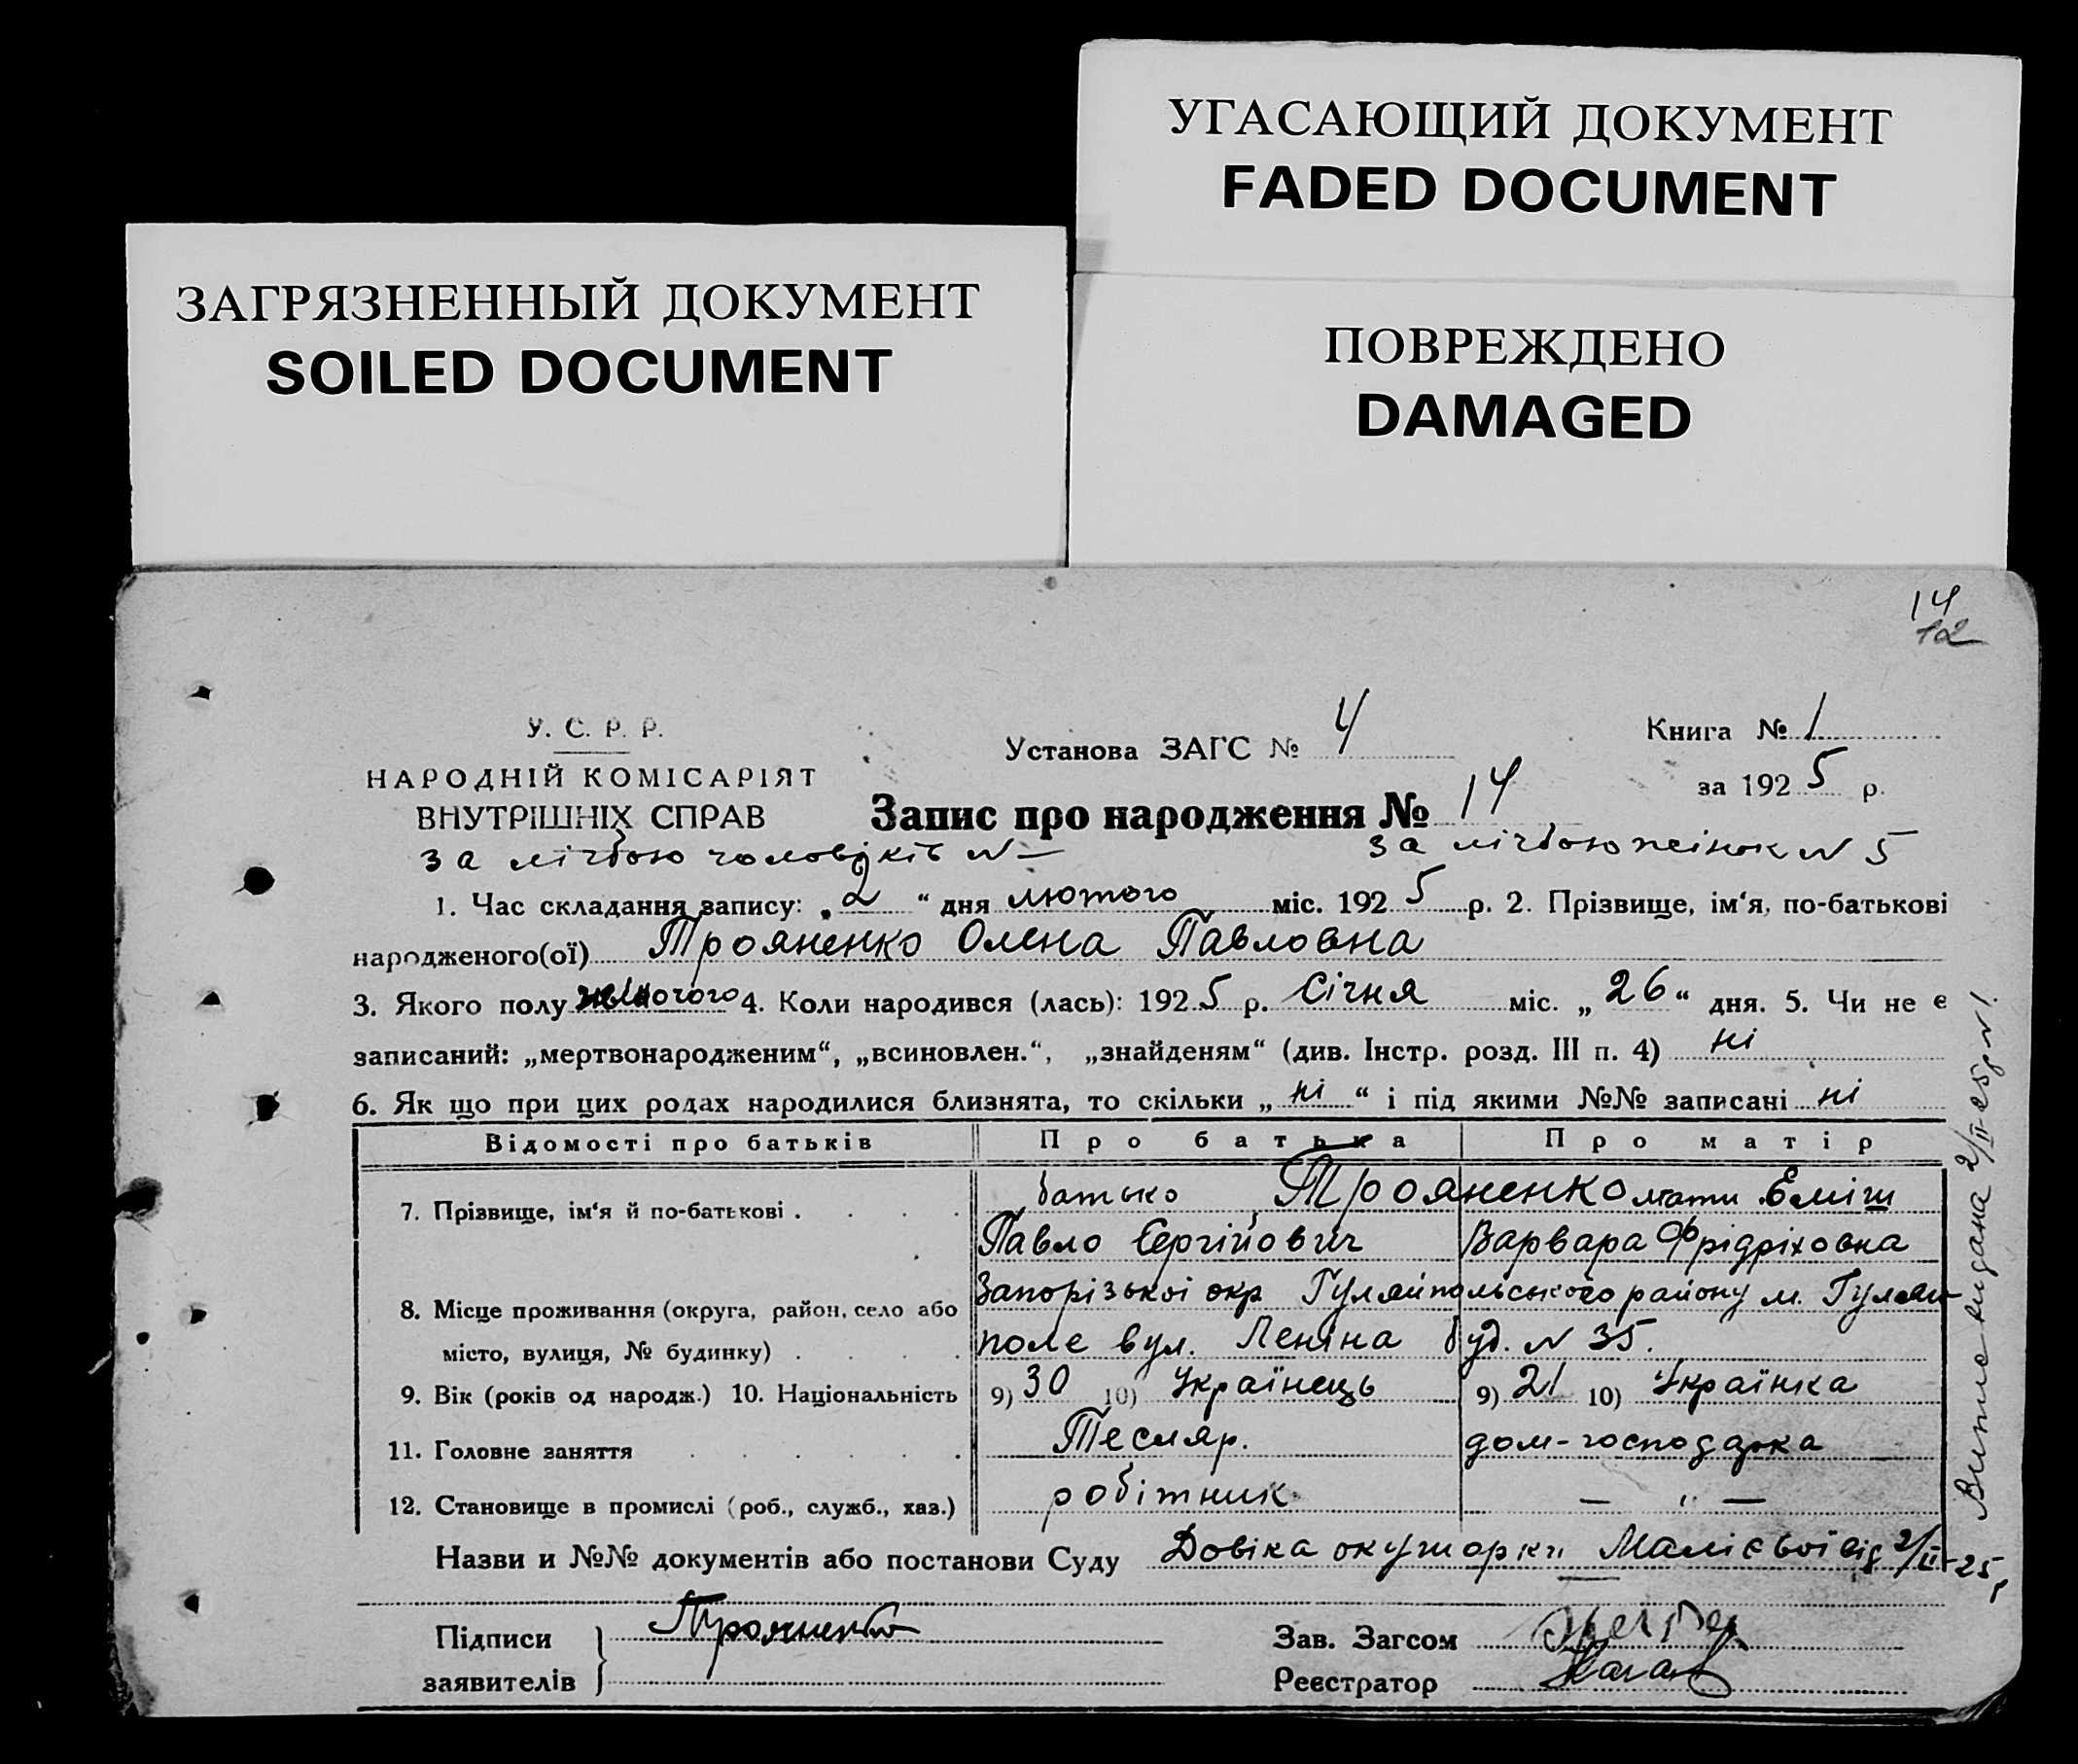 УГАСАЮЩИЙ ДОКУМЕНТ
FADED DOCUMENT
ЗАГРЯЗНЕННЫЙ ДОКУМЕНТ
SOILED DOCUMENT
ПОВРЕЖДЕНО
DAMAGED
14
12
У. С. Р. Р.
НАРОДНІЙ КОМІСАРІЯТ
ВНУТРІШНІХ СПРАВ
Установа ЗАГС № 4
Книга № 1
за 1925 р.
Запис про народження № 14
за лічбою чоловіків N —
за лічбою жінок N 5
1. Час складання запису: „2“ дня лютого міс. 1925 р. 2. Прізвище, ім‘я, по-батькові
народженого(ої) Трояненко Олена Павловна
3. Якого полу жіночого 4. Коли народився (лась): 1925 р. Січня міс. „26“ дня. 5. Чи не є
записаний: „мертвонародженим“, „всиновлен.“, „знайденям“ (див. Інстр. розд. III п. 4) ні
6. Як що при цих родах народилися близнята, то скільки „ні“ і під якими №№ записані ні
Відомості про батьків Про батька Про матір
7. Прізвище, ім‘я й по-батькові . батько Трояненко мати Еміш
Павло Сергійович Варвара Фрідріховна
8. Місце проживання (округа, район, село або Запорізької окр Гуляйпольського району м. Гуляй-
місто, вулиця, № будинку) . поле вул. Леніна буд. N 35.
9. Вік (років од народж.) 10. Національність 9) 30 10) Українець 9) 21 10) Українка
11. Головне заняття Тесляр. дом-господарка
12. Становище в промислі (роб., служб., хаз.) робітник — „ —
Назви и №№ документів або постанови Суду Довіка окушорки Малієвої від 2/II-25р
Підписи заявителів Трояненко
Зав. Загсом
Реєстратор
Витяг видана 2/II-25р N 1.